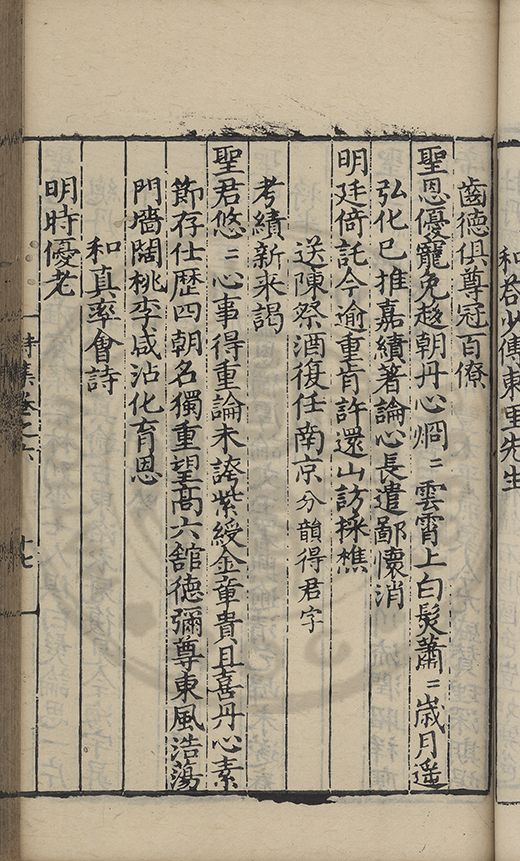 和答少傅東里先生
齒德俱尊冠百僚
聖恩優寵免趍朝丹心烱〻雲霄上白髮蕭〻歲月遥
弘化已推嘉績著論心長遣鄙懷消
明廷倚託今逾重肯許還山訪採樵
送陳祭酒復任南京分韻得君字
考績新来謁
聖君悠〻心事得重論未誇紫綬金章貴且喜丹心素
節存仕歴四朝名獨重望高六舘德彌尊東風浩蕩
門墻闊桃李咸沾化育恩
和真率會詩
明時優老
詩集卷之六
十七